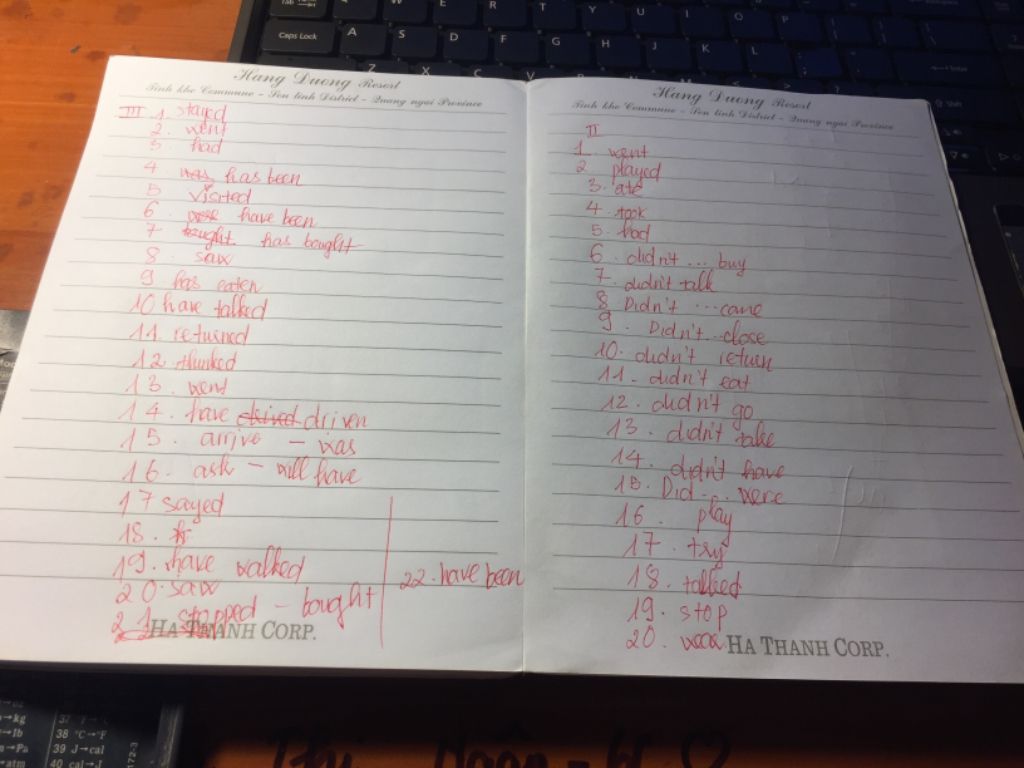 W E R T Y U I O P
Caps Lock A S D F G H J K L
Z X C V B N M
Shift
Hang Duong Resort
Tinh khe Commune - Son tinh District - Quang ngai Province
III 1. stayed
2. went
3. had
4. was has been
5 visited
6. have been
7 bought has bought
8. saw
9 has eaten
10 have talked
11. returned
12. thinked
13. went
14. have drived driven
15. arrive - was
16. ask - will have
17 sayed
18.
19. have walked
20. saw
21. stopped - bought
22. have been
HA THANH CORP.
Hang Duong Resort
Tinh khe Commune - Son tinh District - Quang ngai Province
II
1 went
2 played
3. ate
4. took
5. had
6. didn't ... buy
7. didn't talk
8 Didn't ... came
9. Didn't...close
10. didn't return
11. didn't eat
12. didn't go
13. didn't take
14. didn't have
15. Did... were
16. play
17. try
18. talked
19. stop
20.
HA THANH CORP.
→kg 37
→lb 38 °C→°F
→Pa 39 J→cal
→atm 40 cal→J
172-3